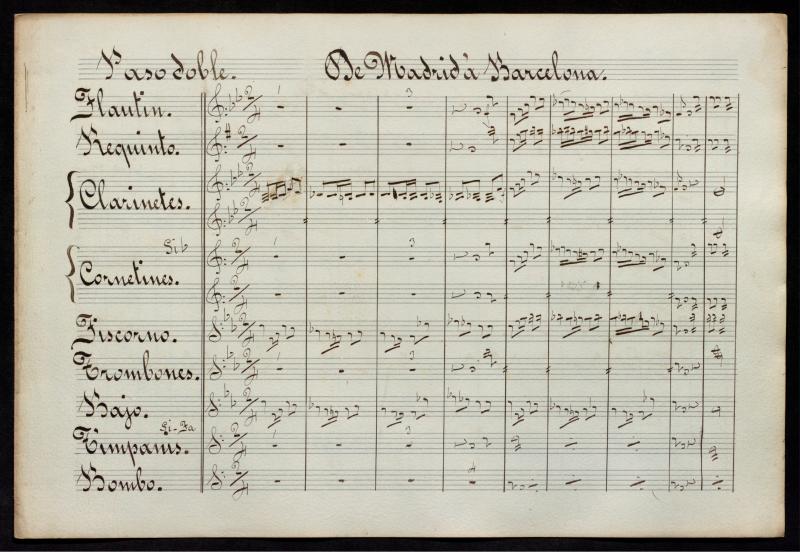 Paso doble. De Madrid à Barcelona.
Flautin.
Requinto.
Clarinetes.
Si b
Cornetines.
Fiscorno.
Trombones.
Bajo.
Si-Fa
Timpanis.
Bombo.